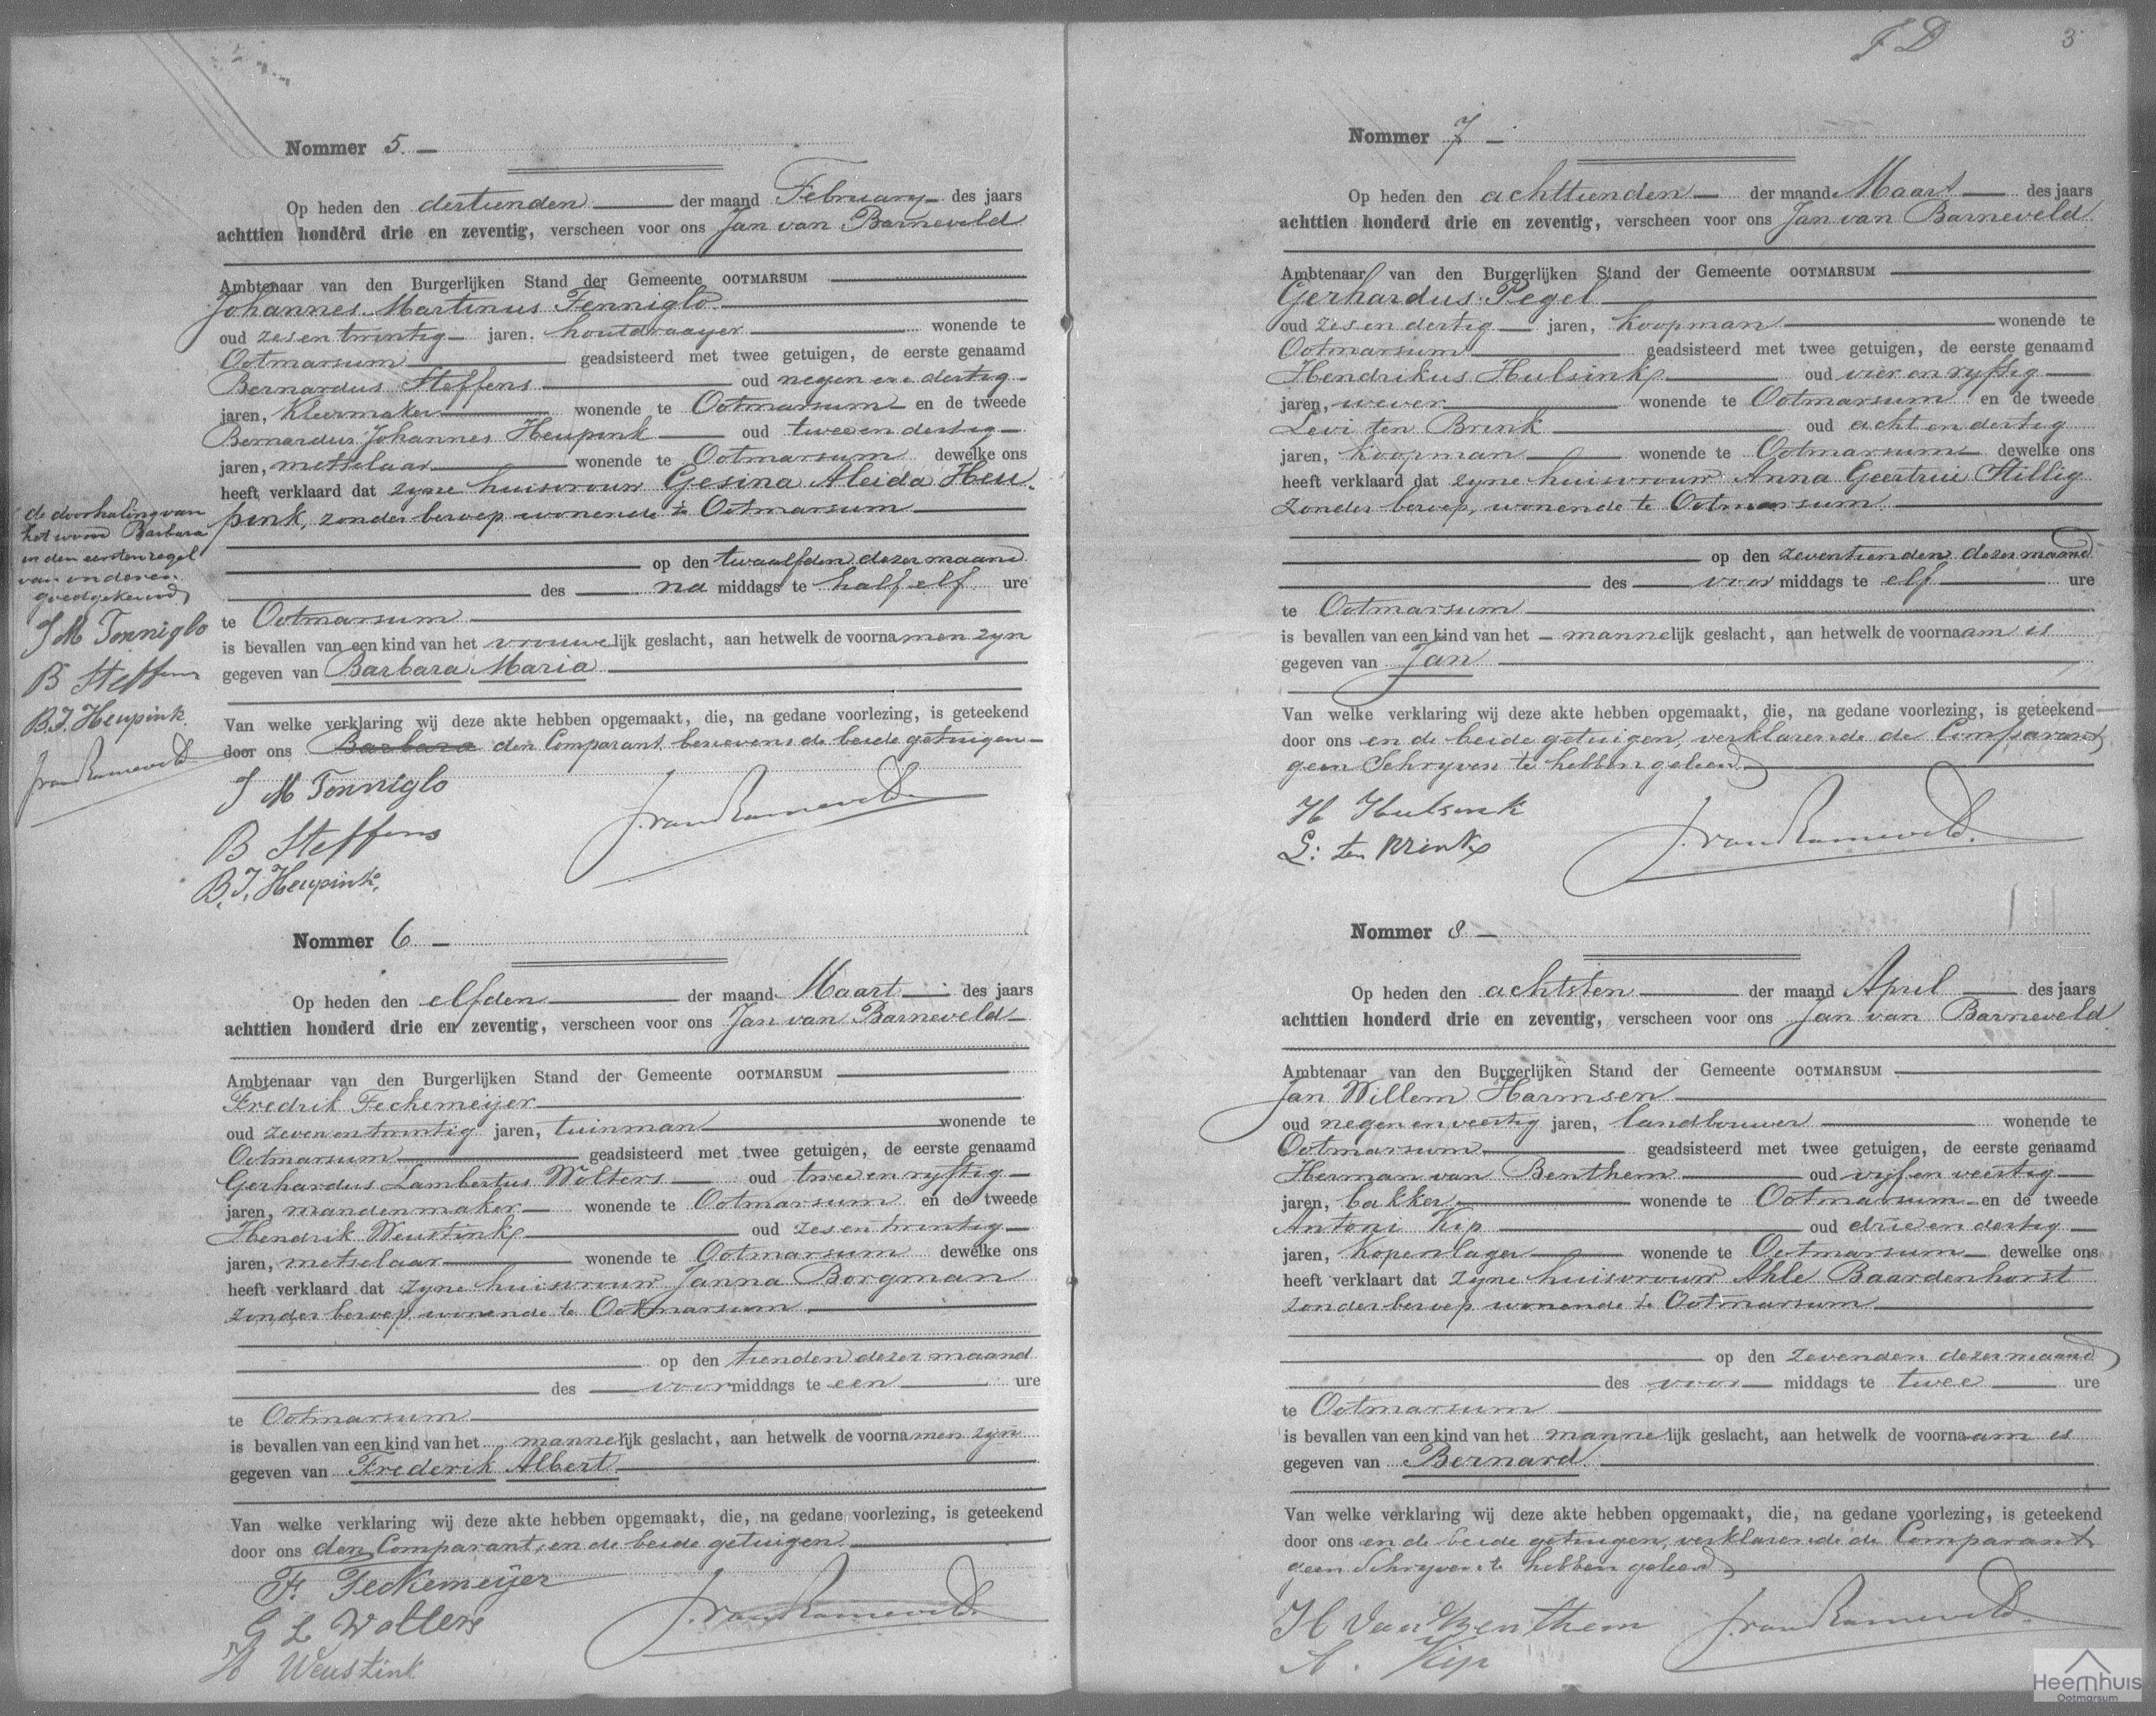 Nommer 5.
Op heden den dertienden der maand February des jaars
achttien honderd drie en zeventig, verscheen voor ons Jan van Barneveld
Ambtenaar van den Burgerlijken Stand der Gemeente OOTMARSUM
Johannes Martinus Tenniglo
oud zesentwintig jaren. houtdraayer wonende te
Ootmarsum geadsisteerd met twee getuigen, de eerste genaamd
Bernardus Steffens oud negen en dertig
jaren, Kleermaker wonende te Ootmarsum en de tweede
Bernardus Johannes Heupink oud tweeendertig
jaren, metselaar wonende te Ootmarsum dewelke ons
heeft verklaard dat zyne huisvrouw Gesina Aleida Heu-
pink, zonder beroep wonende te Ootmarsum
op den twaalfden dezer maand
des na middags te half elf ure
te Ootmarsum
is bevallen van een kind van het vrouwelijk geslacht, aan hetwelk de voornamen zyn
gegeven van Barbara Maria
Van welke verklaring wij deze akte hebben opgemaakt, die, na gedane voorlezing, is geteekend
door ons Barbara den Comparant benevens de beide getuigen
J M Tenniglo
B Steffens
B.J. Heupink.
J. van Barneveld
de doorhaling van
het woord Barbara
in den eersten regel
van onderen
goedgekeurd
J M Tenniglo
B Steffens
B.J. Heupink.
J van Barneveld
Nommer 6
Op heden den elfden der maand Maart des jaars
achttien honderd drie en zeventig, verscheen voor ons Jan van Barneveld
Ambtenaar van den Burgerlijken Stand der Gemeente OOTMARSUM
Fredrik Feckemeijer
oud zevenentwintig jaren, tuinman wonende te
Ootmarsum geadsisteerd met twee getuigen, de eerste genaamd
Gerhardus Lambertus Wolters oud twee en vyftig
jaren, mandenmaker wonende te Ootmarsum en de tweede
Hendrik Weustink oud zesentwintig
jaren, metselaar wonende te Ootmarsum dewelke ons
heeft verklaard dat zyne huisvrouw Janna Borgman
zonder beroep, wonende te Ootmarsum
op den tienden dezer maand
des voormiddags te een ure
te Ootmarsum
is bevallen van een kind van het mannelijk geslacht, aan hetwelk de voornamen zyn
gegeven van Frederik Albert
Van welke verklaring wij deze akte hebben opgemaakt, die, na gedane voorlezing, is geteekend
door ons den Comparant, en de beide getuigen
F. Feckemeijer
G L Wolters
H Weustink
J. van Barneveld
J D 3
Nommer 7
Op heden den achttienden der maand Maart des jaars
achttien honderd drie en zeventig, verscheen voor ons Jan van Barneveld
Ambtenaar van den Burgerlijken Stand der Gemeente OOTMARSUM
Gerhardus Pegel
oud zes en dertig jaren, koopman wonende te
Ootmarsum geadsisteerd met twee getuigen, de eerste genaamd
Hendrikus Hulsink oud vier en vyftig
jaren, wever wonende te Ootmarsum en de tweede
Levi ten Brink oud acht en dertig
jaren, koopman wonende te Ootmarsum dewelke ons
heeft verklaard dat zyne huisvrouw Anna Geertrui Hillig
zonder beroep, wonende te Ootmarsum
op den zeventienden dezer maand
des voor middags te elf ure
te Ootmarsum
is bevallen van een kind van het mannelijk geslacht, aan hetwelk de voornaam is
gegeven van Jan
Van welke verklaring wij deze akte hebben opgemaakt, die, na gedane voorlezing, is geteekend
door ons en de beide getuigen, verklarende de Comparant
geen Schryven te hebben geleerd
H Hulsink
L: ten Brink
J. van Barneveld.
Nommer 8
Op heden den achtsten der maand April des jaars
achttien honderd drie en zeventig, verscheen voor ons Jan van Barneveld
Ambtenaar van den Burgerlijken Stand der Gemeente OOTMARSUM
Jan Willem Harmsen
oud negen en veertig jaren, landbouwer wonende te
Ootmarsum geadsisteerd met twee getuigen, de eerste genaamd
Herman van Benthem oud vyf en veertig
jaren, bakker wonende te Ootmarsum en de tweede
Antoni Kip oud drie en dertig
jaren, Koperslager wonende te Ootmarsum dewelke ons
heeft verklaart dat zyne huisvrouw Ahle Baardenhorst
zonder beroep wonende te Ootmarsum
op den zevenden dezer maand
des voor middags te twee ure
te Ootmarsum
is bevallen van een kind van het mannelijk geslacht, aan hetwelk de voornaam is
gegeven van Bernard
Van welke verklaring wij deze akte hebben opgemaakt, die, na gedane voorlezing, is geteekend
door ons en de beide getuigen, verklarende de Comparant
geen Schryven te hebben geleerd
H Van Benthem
A. Kip
J van Barneveld.
Heemhuis
Ootmarsum